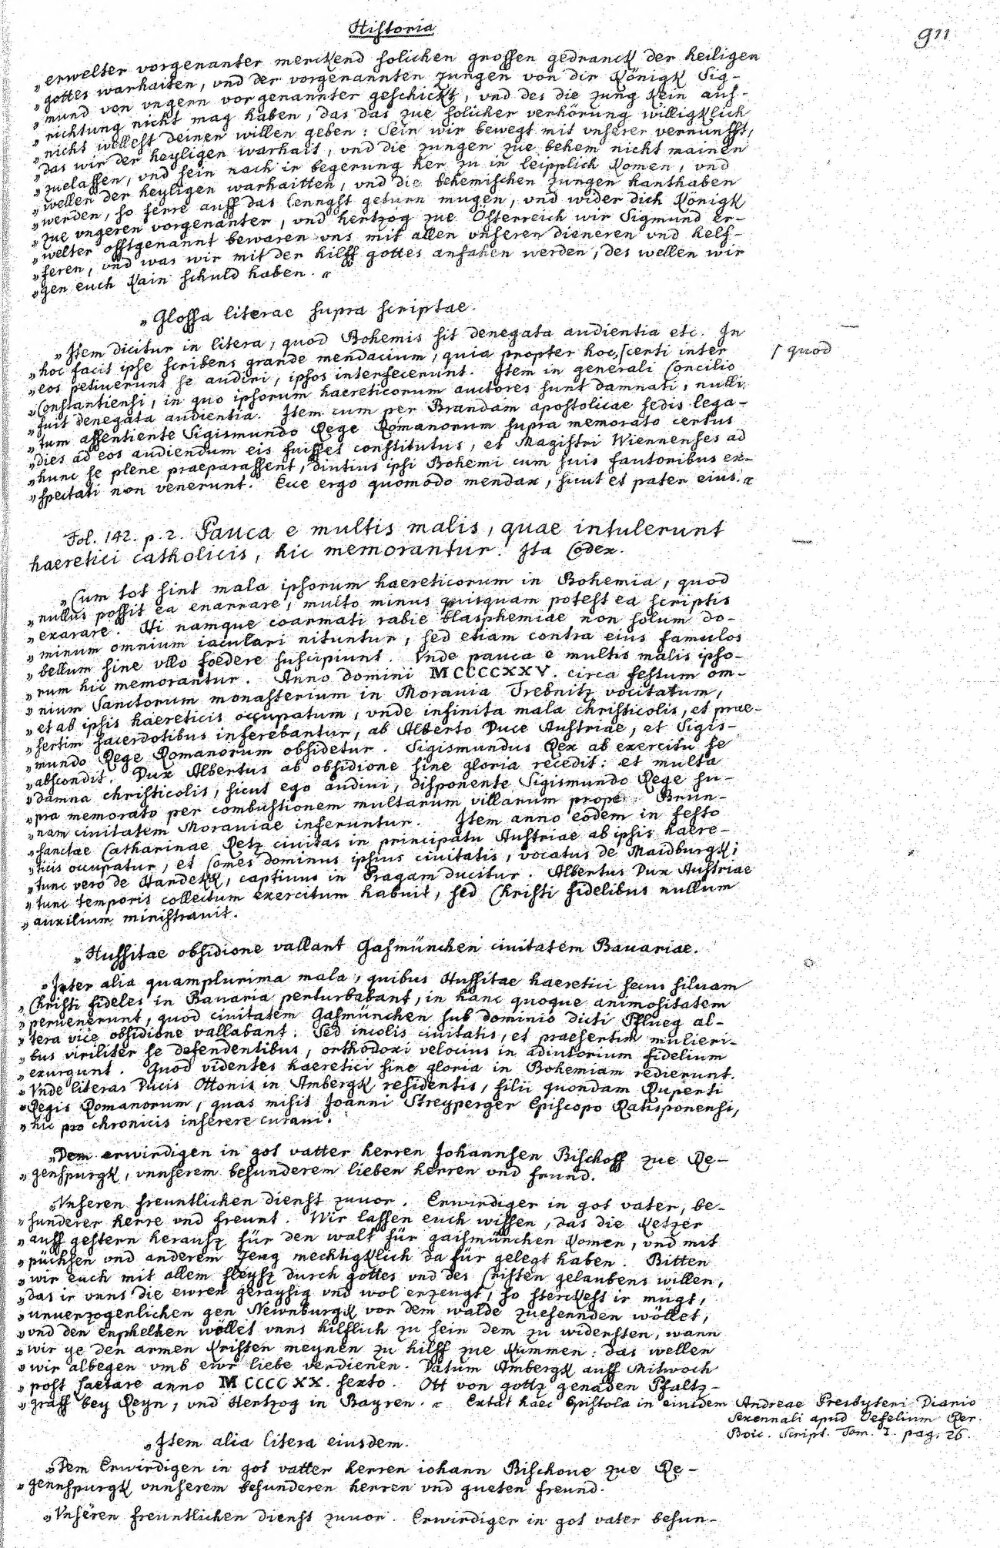 Historia
911
„ erwelter vorgenanter merckend solichen grossen gedranck der heiligen
„ gottes warhaiten, vnd der vorgenannten zungen von dir Königk Sig-
„ mund von vngern vorgenannter geschickt, vnd des die zung kein auf-
„ richtung nicht mag haben, das das zue solicher verhörung willigklich
„ nicht wellest deinen willen geben: Sein wir bewegt mit vnserer vernunfft,
„ das wir der heyligen warhait, vnd die zungen zue behem nicht mainen
„ zuelassen, vnd sein nach ir begerung her zu in leipplich komen, vnd
„ wellen der heyligen warhaitten, vnd die behemischen zungen hanthaben
„ werden, so ferre auff das lenngst geturn mugen, vnd wider dich Königk
„ zue vngeren vorgenanter, vnd hertzog zue Österreich wir Sigmund er-
„ welter offtgenannt bewaren vns mit allen vnseren dieneren vnd helf-
„ feren, vnd was wir mit der hilff gottes anfahen werden, des wellen wir
„ gen euch kain schuld haben. “
„ Glossa literae supra scriptae.
„ Item dicitur in litera, quod Bohemis sit denegata audientia etc. In
„ hoc facit ipse scribens grande mendacium, quia propter hoc, ⌈certi inter
⌈ quod
„ eos petiuerunt se audiri, ipsos interfecerunt. Item in generali Concilio
„ Constantiensi, in quo ipsorum haereticorum auctores sunt damnati, nulli
„ fuit denegata audientia. Item cum per Brandam apostolicae sedis lega-
„ tum assentiente Sigismundo Rege Romanorum supra memorato certus
„ dies ad eos audiendum eis fuisset constitutus, et Magistri Wiennenses ad
„ hunc se plene praeparassent, diutius ipsi Bohemi cum suis fautoribus ex-
„ spectati non venerunt. Ecce ergo quomodo mendax, sicut et pater eius. “
Fol. 142. p. 2. Pauca e multis malis, quae intulerunt
haeretici catholicis, hic memorantur. Ita Codex.
„ Cum tot sint mala ipsorum haereticorum in Bohemia, quod
„ nullus possit ea enarrare, multo minus quisquam potest ea scriptis
„ exarare. Hi namque coarmati rabie blasphemiae non solum do-
„ minum omnium iaculari nituntur, sed etiam contra eius famulos
„ bellum sine vllo foedere suscipiunt. Vnde pauca e multis malis ipso-
„ rum hic memorantur. Anno domini MCCCCXXV. circa festum om-
„ nium Sanctorum monasterium in Morauia Trebnitz vocitatum,
„ et ab ipsis haereticis occupatum, vnde infinita mala christicolis, et prae-
„ sertim sacerdotibus inferebantur, ab Alberto Duce Austriae, et Sigis-
„ mundo Rege Romanorum obsidetur. Sigismundus Rex ab exercitu se
„ abscondit. Dux Albertus ab obsidione sine gloria recedit: et multa
„ damna christicolis, sicut ego audiui, disponente Sigismundo Rege su-
„ pra memorato per combustionem multarum villarum prope Brün-
„ nam ciuitatem Morauiae inferuntur. Item anno eodem in festo
„ sanctae Catharinae Retz ciuitas in principatu Austriae ab ipsis haere-
„ ticis occupatur, et Comes dominus ipsius ciuitatis, vocatus de Maidburgk,
„ tunc vero de Hardekk, captiuus in Pragam ducitur. Albertus Dux Austriae
„ tunc temporis collectum exercitum habuit, sed Christi fidelibus nullum
„ auxilium ministrauit.
„ Hussitae obsidione vallant Gasmünchen ciuitatem Bauariae.
„ Inter alia quamplurima mala, quibus Hussitae haeretici secus siluam
„ Christi fideles in Bauaria perturbabant, in hanc quoque animositatem
„ peruenerunt, quod ciuitatem Gasmünchen sub dominio dicti Pflueg al-
„ tera vice obsidione vallabant. Sed incolis ciuitatis, et praesertim mulieri-
„ bus viriliter se defendentibus, orthodoxi velocius in adiutorium fidelium
„ exurgunt. Quod videntes haeretici sine gloria in Bohemiam redierunt.
„ Vnde literas Ducis Ottonis in Ambergk residentis, filii quondam Ruperti
„ Regis Romanorum, quas misit Joanni Streyperger Episcopo Ratisponensi,
„ hic pro chronicis inserere curaui.
„ Dem erwirdigen in got vatter herren Johannsen Bischoff zue Re-
„ genspürgk, vnnserem besunderem lieben herren vnd freund.
„ Vnseren freuntlichen dienst zuuor. Erwirdiger in got vater, be-
„ sunderer herre vnd freunt. Wir lassen euch wissen, das die Ketzer
„ auff gestern herausz für den walt für gaismünchen komen, vnd mit
„ püchsen vnd anderem zeug mechtigklich da für gelegt haben. Bitten
„ wir euch mit allem fleysz durch gottes vnd des Cristen gelaubens willen,
„ das ir vnns die ewren geraysig vnd wol erzeugt, so sterckest ir mügt,
„ vnuerzogenlichen gen Newnburgk vor dem walde zuesennden wöllet,
„ vnd den enphelhen wöllet vnns hilflich zu sein dem zu widersten, wann
„ wir ye den armen kristen meynen zu hilff zue kummen: das wellen
„ wir albegen vmb ewr liebe verdienen. Datum Ambergk auff Mitwoch
„ post Laetare anno MCCCCXX. sexto. Ott von gottz genaden Pfaltz-
„ graff bey Reyn, vnd Hertzog in Bayren. “ Extat haec Epistola in eiusdem Andreae Presbyteri Diario
Sexennali apud Oefelium Rer.
Boic. Script. Tom. I. pag. 26.
„ Item alia litera eiusdem.
„ Dem Erwirdigen in got vatter herren iohann Bischoue zue Re-
„ gennspurgk vnnserem besunderen herren vnd gueten freund.
„ Vnseren freuntlichen dienst zuuor. Erwirdiger in got vater besun-